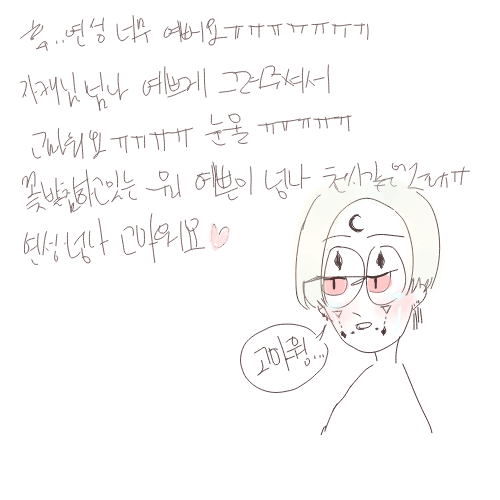 흑..연성 너무 예뻐요ㅠㅠㅠㅠㅠㅠㅠ
자캐님 넘나 예쁘게 그려주셔서
고마워요 ㅠㅠㅠㅠ 눈물 ㅠㅠㅠㅠㅠ
꽃받침하고있는 우리 예쁜이 넝나
연성 넝나 고마워요
고마웡...